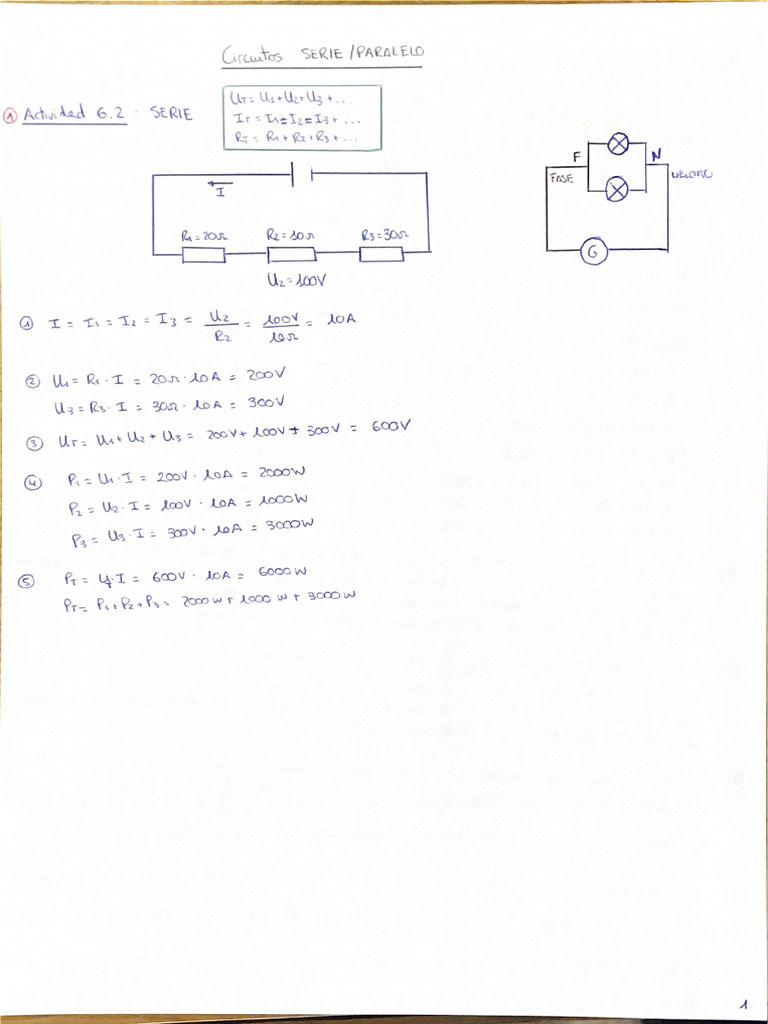 Circuitos SERIE/PARALELO
① Actividad 6.2: SERIE
UT = U1+U2+U3+...
IT = I1=I2=I3+...
RT = R1+R2+R3+...
I
R1=20Ω R2=10Ω R3=30Ω
U2=100V
F N
FASE NEUTRO
G
① I = I1 = I2 = I3 = U2/R2 = 100V/10Ω = 10A
② U1 = R1·I = 20Ω·10A = 200V
U3 = R3·I = 30Ω·10A = 300V
③ UT = U1+U2+U3 = 200V+100V+300V = 600V
④ P1 = U1·I = 200V·10A = 2000W
P2 = U2·I = 100V·10A = 1000W
P3 = U3·I = 300V·10A = 3000W
⑤ PT = UT·I = 600V·10A = 6000W
PT = P1+P2+P3 = 2000W+1000W+3000W
1